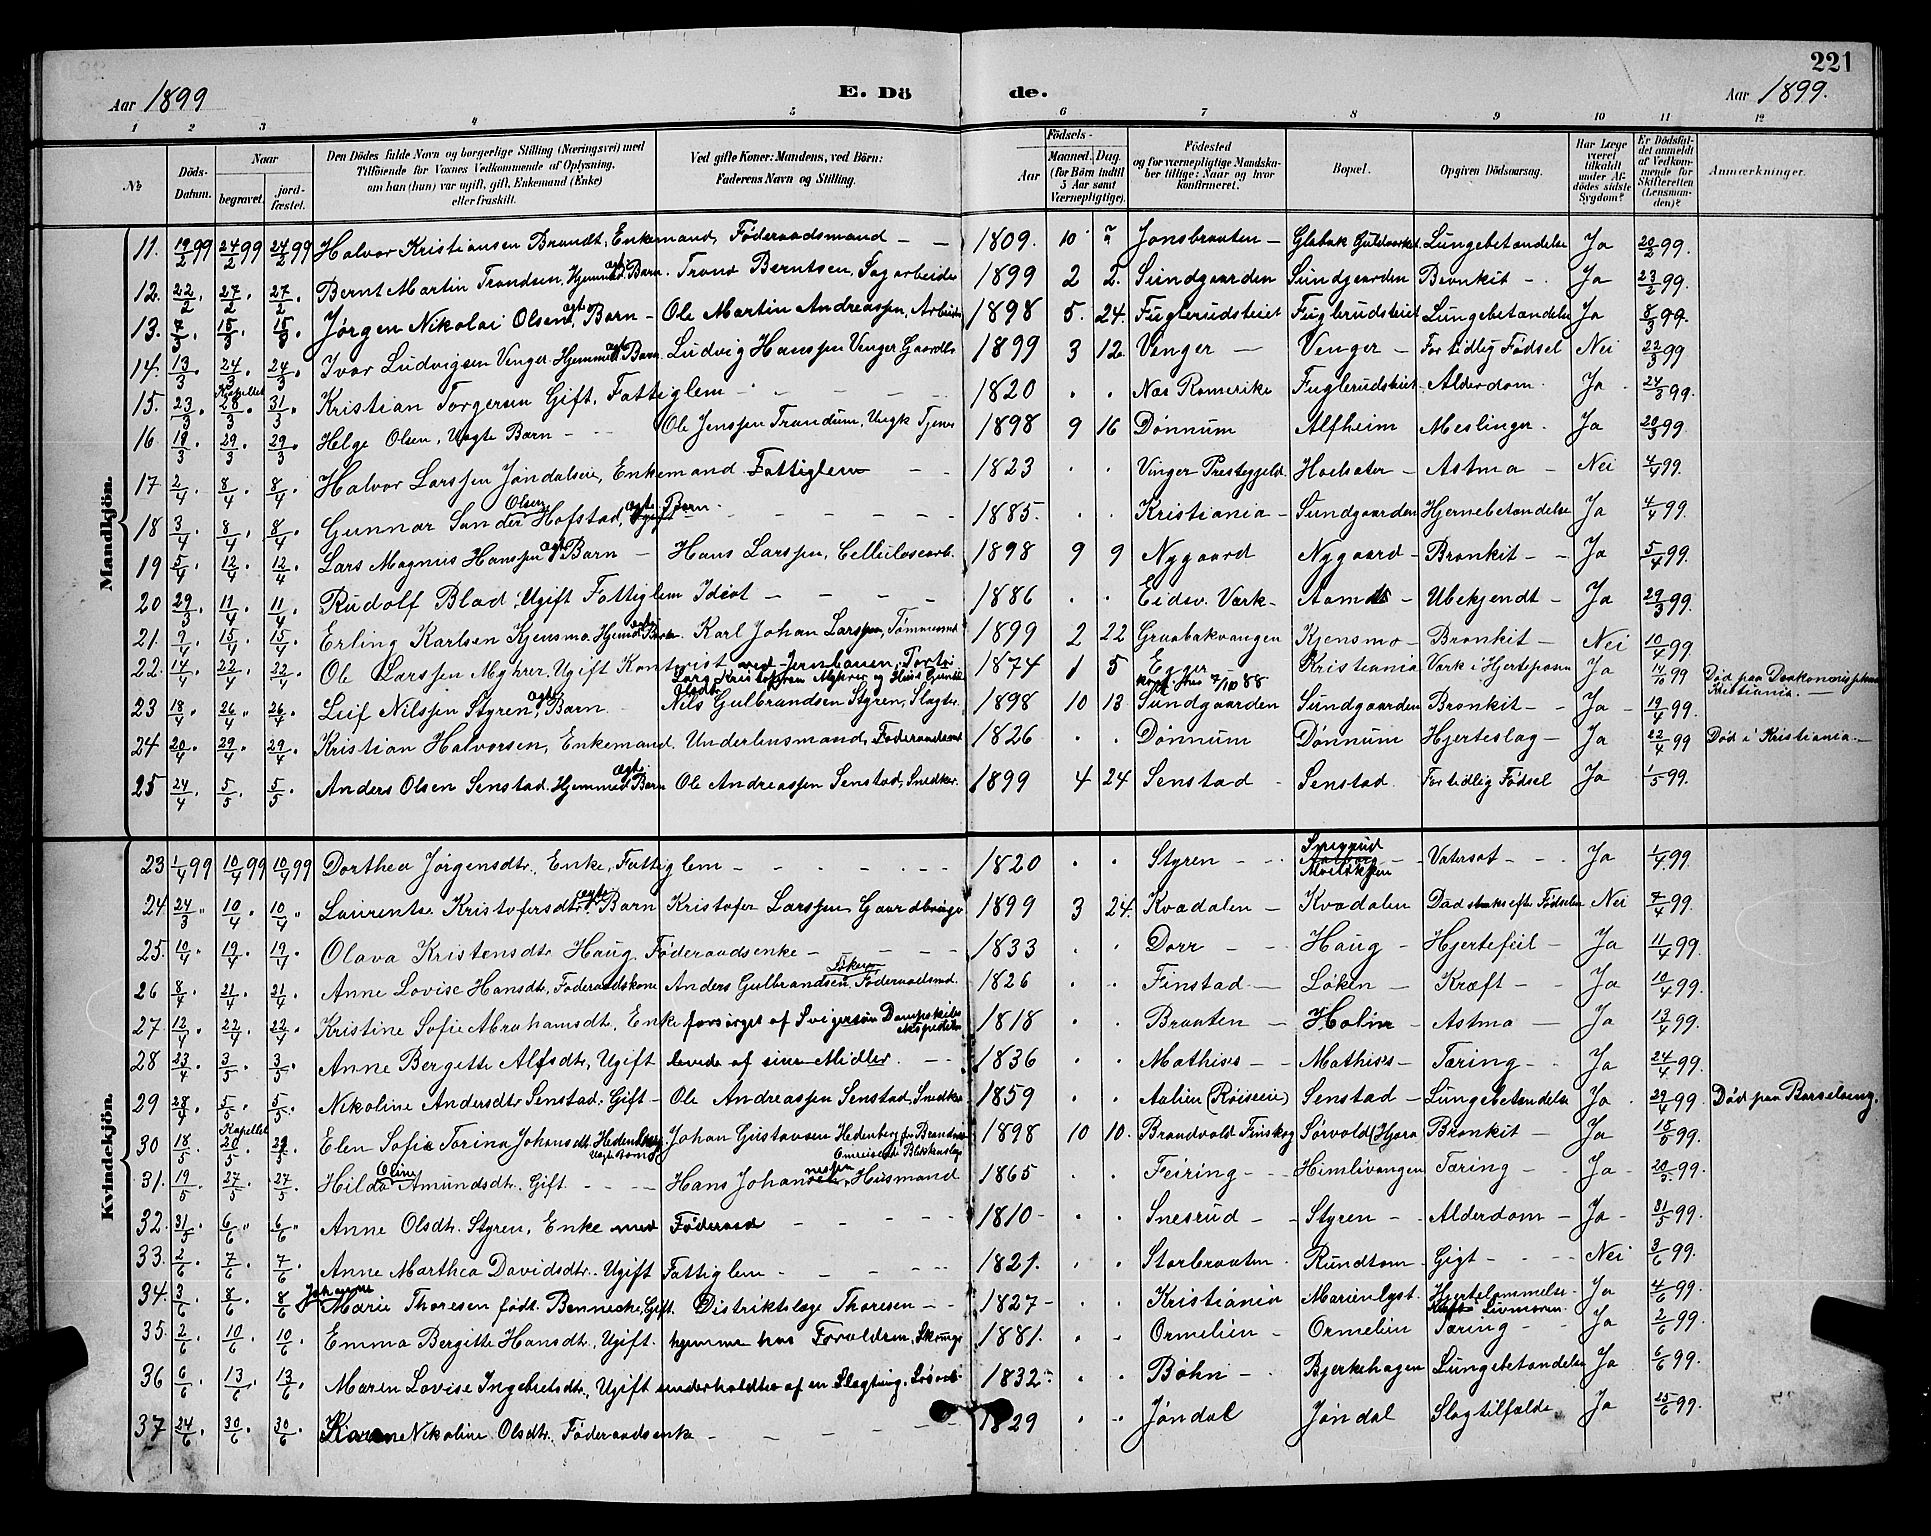 221
Aar 1899 E. Dö de. Aar 1899.
1 2 3 4 5 6 7 8 9 10 11 12
№ Döds-Datum. Naar begravet. jord-fæstet. Den Dödes fulde Navn og borgerlige Stilling (Næringsvei) med Tilföiende for Voxnes Vedkommende af Oplysning, om han (hun) var ugift, gift, Enkemand (Enke) eller fraskilt. Ved gifte Koner: Mandens, ved Börn: Faderens Navn og Stilling. Födsels- Aar Maaned. Dag. (for Börn indtil 5 Aar samt Værnepligtige). Födested og for værnepligtige Mandskaber tillige: Naar og hvor konfirmeret. Bopæl. Opgiven Dödsaarsag. Har Læge været tilkaldt under Afdödes sidste Sygdom? Er Dödsfaldet anmeldt af Vedkommende for Skifteretten (Lensmanden)? Anmærkninger.
Mandkjön.
11. 19/2 99 24/2 99 24/2 99 Halvor Kristiansen Brandt, Enkemand, Föderaadsmand – – 1809. 10 Jonsbraaten – Guldværket Lungebetændelse Ja 20/2 99.
12. 22/2 . 27/2 . 27/2 . Bernt Martin Trondsen, Hjemmed. ægte Barn. Trond Berntsen, Sagarbeider 1899 2 2. Sundgaarden Sundgaarden Bronkit – Ja 23/2 99.
13. 7/3 . 15/3 . 15/3 . Jørgen Nikolai Olsen, ægte Barn – Ole Martin Andreassen, Arbeider 1898 5. 24. Fuglerudsteiet Fuglerudsteiet Lungebetændelse Ja 8/3 99.
14. 13/3 . 24/3 . 24/3 . Ivar Ludvigsen Venger Hjemmed. ægte Barn Ludvig Hanssen Venger Gaardbr. 1899 3 12. Venger – Venger – For tidlig Födsel Nei 22/3 99
15. 23/3 . Kapellet 28/3 31/3 . Kristian Torgersen Gift, Fattiglem – – – 1820 . . Nes Romerike Fuglerudsteiet Alderdom. Ja . 24/3 99.
16. 19/3 . 29/3 . 29/3 . Helge Olsen, Uægte Barn – – Ole Jenssen Trandum, Ungk. Tjener 1898 9 16 Dønnum Alfheim Meslinger. Ja . 20/3 99.
17 2/4 . 8/4 . 8/4 . Halvor Larssen Jøndalseie, Enkemand Fattiglem – – 1823 . . Vinger Prestegjeld Hoelsæter – Astma – Nei 4/4 99.
18 3/4 . 8/4 . 8/4 . Gunnar Sander Olsen Hofstad, ægte Barn. – – – – 1885. . . Kristiania – Sundgaarden Hjernebetændelse Ja 4/4 99
19 5/4 . 12/4 . 12/4 . Lars Magnus Hanssen ægte Barn – Hans Larssen, Cellulosearb. 1898 9 9 Nygaard Nygaard – Bronkit – – Ja 5/4 99.
20 29/3 . 11/4 . 11/4 . Rudolf Blad, Ugift Fattiglem Idiot – – – – 1886 . . Eidsv. Værk – – Ubekjendt – Ja 29/3 99.
21. 9/4 . 15/4 . 15/4 . Erling Karlsen Kjensmo Hjemmed. ægte Barn. Karl Johan Larssen, Tømmermd 1899 2 22 Graabakvangen Kjensmo – Bronkit – Nei 10/4 99.
22. 14/4 . 22/4 . 22/4 . Ole Larssen Myhrer, Ugift Kontorist ved Jernbanen, Lars Kristofersen Myhrer og 1874 1 5 Egger – 7/10 88 Kristiania Værk i Hjerteposen Ja 99 Død paa Diakonisse Kristiania. –
23 18/4 . 26/4 . 26/4 . Leif Nilssen Styren, ægte Barn. Nils Gulbrandsen Styren, Slagter. 1898 10 13 Sundgaarden Sundgaarden Bronkit – – Ja – 19/4 99.
24 20/4 . 29/4 . 29/4 . Kristian Halvorsen, Enkemand. Underlensmand, Föderaadsmd 1826 . . Dønnum Dønnum Hjerteslag – Ja 22/4 99 Død i Kristiania. –
25 24/4 . 5/5 . 5/5 . Anders Olsen Senstad. Hjemmed. ægte Barn Ole Andreassen Senstad, Snedker. 1899 4 24 Senstad – Senstad. For tidlig Födsel Ja 1/5 99.
Kvindekjön.
23 1/4 99 10/4 99 10/4 99 Dorthea Jørgensdtr., Enke, Fattiglem – – – – – – 1820 . . Styren – – Vatersot – – . Ja 1/4 99.
24. 24/3 . 10/4 . 10/4 . Laurentse Kristofersdtr. ægte Barn Kristofer Larssen Gaardbruger 1899 3 24. Kvædalen – Kvædalen Död straks efter Födselen Nei 7/4 99.
25. 10/4 . 19/4 . 19/4 . Olava Kristensdtr. Haug. Föderaadsenke – – – – 1833 . . Dorr – – Haug – Hjertefeil – Ja 11/4 99.
26 8/4 . 21/4 . 21/4 . Anne Lovise Hansdtr, Föderaadskone Anders Gulbrandsen Løken Föderaadsmd. 1826 . . Finstad – Løken – Kræft – – Ja 10/4 99.
27. 12/4 . 22/4 . 22/4 . Kristine Sofie Abrahamsdtr, Enke forsørget af Svigersøn Dampskibsekspeditør 1818 . . Braaten – Holm – Astma – – Ja 13/4 99.
28 23/4 . 3/5 . 3/5 . Anne Bergitte Alfsdtr, Ugift levede af sine Midler. – – 1836 . . Mathises – Mathises – Tæring – – Ja 24/4 99.
29 28/4 . 5/5 . 5/5 . Nikoline Andersdtr Senstad. Gift – Ole Andreassen Senstad, Snedker 1859 . . Aalien (Røiseeie) Senstad – Lungebetændelse Ja . 29/4 99. Død paa Barselseng.
30 18/5 . Kapellet 20/5 . Elen Sofie Torina Johansdt. Hedenberg, uægte Barn Johan Gustavsen Hedenberg fra Brandvold 1898 10 10. Brandvold Finskog Sørvold (Hjera Bronkit – Ja – 18/5 99.
31. 19/5 . 27/5 . 27/5 . Hilda Oline Amundsdtr. Gift – – – – Hans Johannessen, Husmand 1865 . . Feiring – – Himlivangen Tæring – Ja – 20/5 99.
32. 31/5 . 6/6 " 6/6 " Anne Olsdtr. Styren, Enke med Föderaad – – – – 1810 – . . Snesrud – – Styren – Alderdom – Ja – 31/5 99.
33. 2/6 . 7/6 . 7/6 . Anne Marthea Davidsdtr. Ugift Fattiglem – – – – – 1821. . . Storbraaten – Rundtom – Gigt – – – Nei 3/6 99.
34. 3/6 . 8/6 . 8/6 Johanne Marie Thoresen født. Bennecke, Gift. Distriktslæge Thoresen – – 1827 – . . Kristiania Marienlyst. Hjertelammelse – Livmoren. Ja . 4/6 99.
35. 2/6 . 10/6 . 10/6 . Emma Bergitte Hansdtr., Ugift. hjemme hos Forældren, 1881. . – Ormelien – Ormelien Tæring – – Ja 2/6 99.
36 6/6 . 13/6 . 13/6 . Maren Lovise Ingebretsdtr, Ugift underholdtes af en Slægtning. 1832 – . . Bøhn – – Bjerkehagen Lungebetændelse Ja 6/6 99.
37 24/6 . 30/6 . 30/6 . Karen Nikoline Olsdtr. Föderaadsenke – – – – – – 1829 . . Jøndal Jøndal Slagtilfælde Ja 25/6 99.